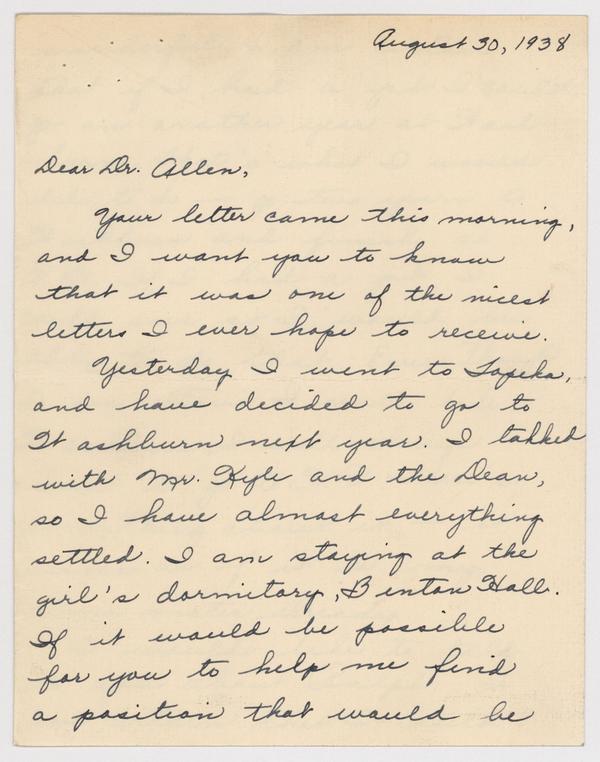 August 30, 1938
Dear Dr. Allen,
Your letter came this morning,
and I want you to know
that it was one of the nicest
letters I ever hope to receive.
Yesterday I went to Topeka,
and have decided to go to
Washburn next year. I talked
with Mr. Kyle and the Dean,
so I have almost everything
settled. I am staying at the
girl's dormitory, Benton Hall.
If it would be possible
for you to help me find
a position that would be